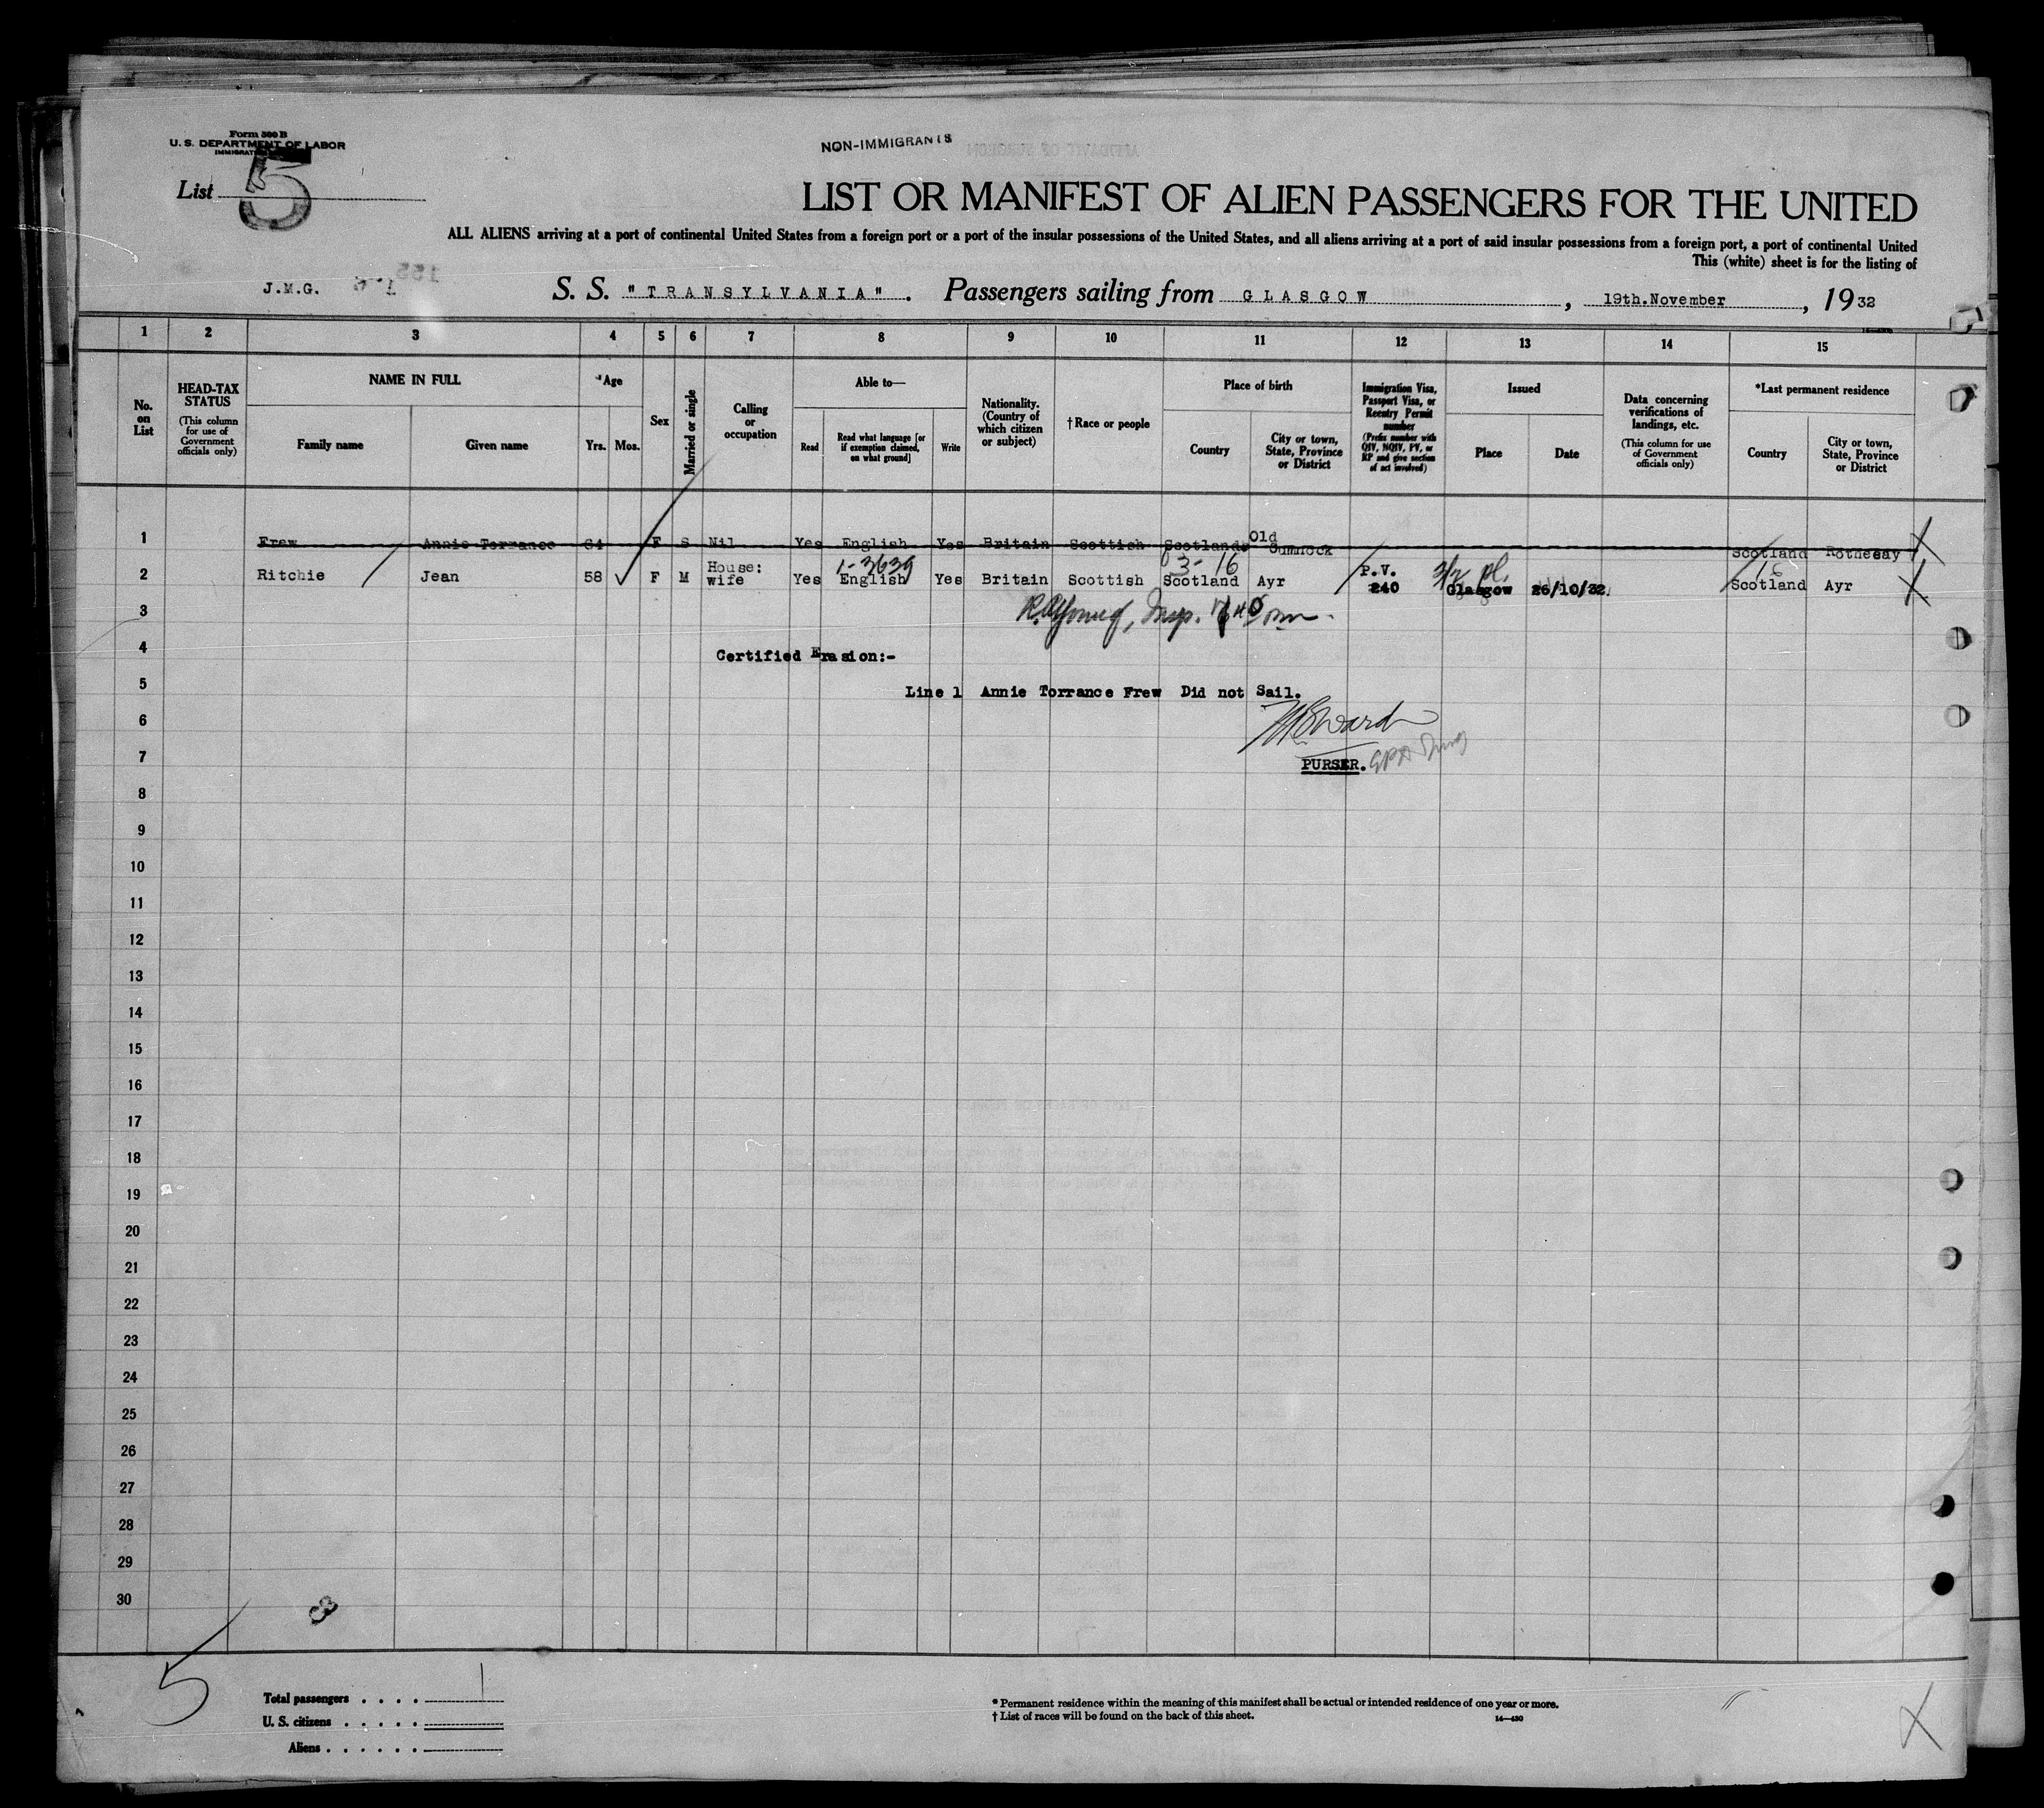 Form 500 B
U. S. DEPARTMENT OF LABOR
NON-IMMIGRANTS
List 5
LIST OR MANIFEST OF ALIEN PASSENGERS FOR THE UNITED
ALL ALIENS arriving at a port of continental United States from a foreign port or a port of the insular possessions of the United States, and all aliens arriving at a port of said insular possessions from a foreign port, a port of continental United
This (white) sheet is for the listing of
J.M.G. S. S. "TRANSYLVANIA". Passengers sailing from GLASGOW, 19th.November, 1932
1 2 3 4 5 6 7 8 9 10 11 12 13 14 15
No. on List
HEAD-TAX STATUS (This column for use of Government officials only)
NAME IN FULL
Family name
Given name
Age
Yrs. Mos.
Sex
Married or single
Calling or occupation
Able to—
Read
Read what language [or if exemption claimed, on what ground]
Write
Nationality. (Country of which citizen or subject)
†Race or people
Place of birth
Country
City or town, State, Province or District
Immigration Visa, Passport Visa, or Reentry Permit number (Prefix number with QIV, NQIV, PV, or RP and give section of act involved)
Issued
Place
Date
Data concerning verifications of landings, etc. (This column for use of Government officials only)
*Last permanent residence
Country
City or town, State, Province or District
1 Frew Annie Torrance 64 F S Nil Yes English Yes Britain Scottish Scotland Old Cumnock Scotland Rothesay
1-3639 3-16 16
2 Ritchie Jean 58 F M House: wife Yes English Yes Britain Scottish Scotland Ayr P.V. 240 Glasgow 26/10/32 Scotland Ayr
3
4 Certified Erasion:-
5 Line 1 Annie Torrance Frew Did not Sail.
6
7 PURSER.
8
9
10
11
12
13
14
15
16
17
18
19
20
21
22
23
24
25
26
27
28
29
30
5
Total passengers . . . . 1
U. S. citizens . . . . .
Aliens . . . . . .
* Permanent residence within the meaning of this manifest shall be actual or intended residence of one year or more.
† List of races will be found on the back of this sheet.
14—430